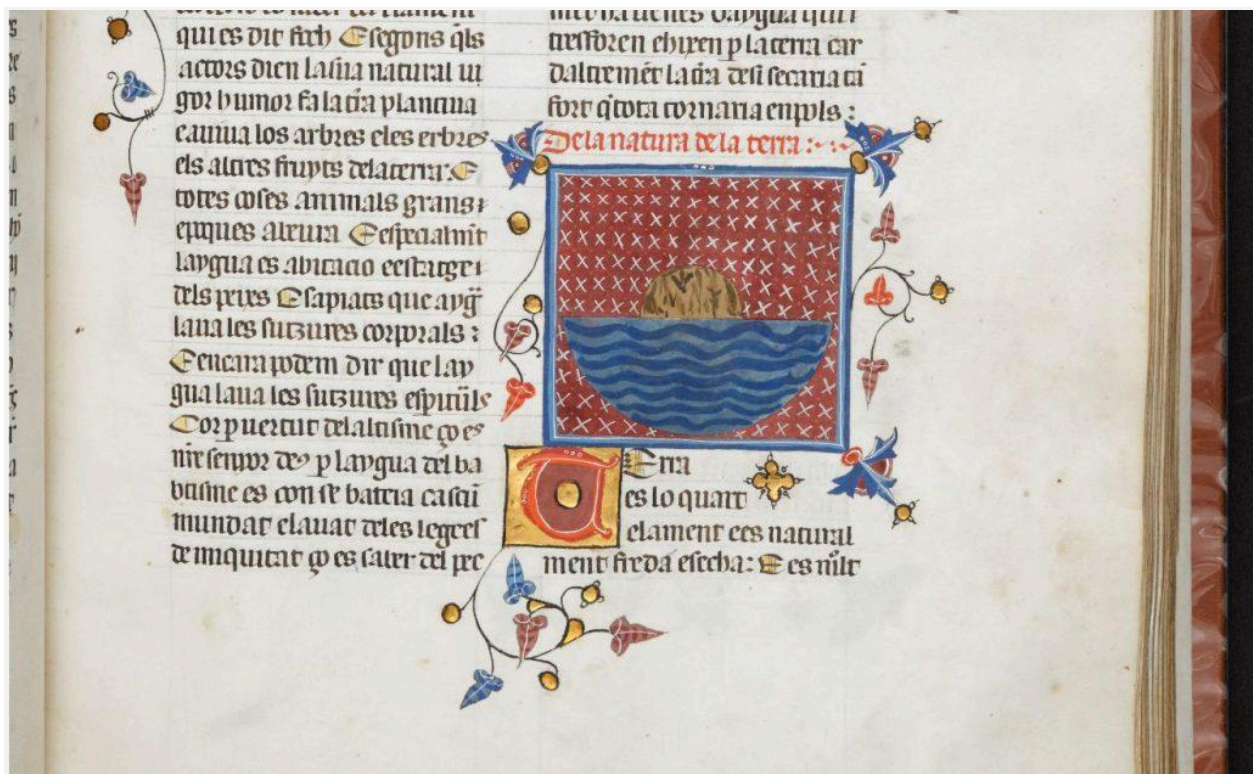 qui es dit foch E segons q̄ls
actors dien la sua natural ui
gor humor fa la t̄ra plantiua
e auiua los arbres e les erbres
els altres fruyts dela terra: E
totes coses animals grans ⁊
epoques abeura E especialmēt
laygua es abitacio e estatge ⁊
dels pexes E sapiats que aygua
laua les sutzures corporals :
E encara podem dir que lay
gua laua les sutzures espirituals
Cor p uertut del altisme ço es
n̄re senyor deus p laygua del ba
btisme es con se bateia cascū
mundat e lauat deles legees
de iniquitat ço es saber del pec
tresforen e hixen p la terra car
daltremēt la t̄ra desi secaria tā
fort q̄ tota tornaria en pols :
De la natura de la terra :
Terra
es lo quart
element e es natural
ment freda e secha : E es mōlt